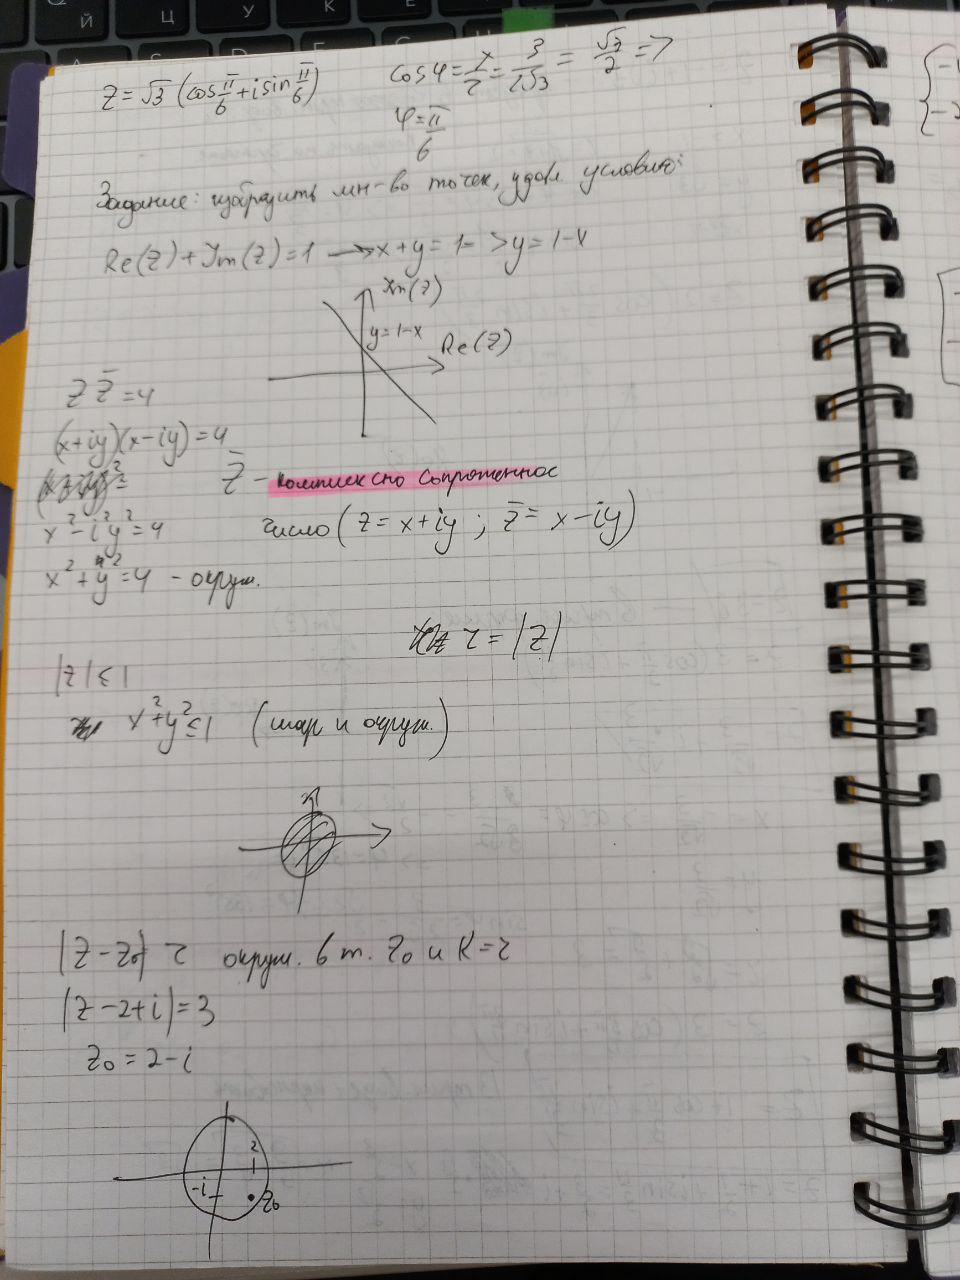 Z = √3 (cos π/6 + i sin π/6)
cos φ = x/r = 3/2√3 = √3/2 =>
φ = π/6
Задание: изобразить мн-во точек, удов. условию:
Re(z) + Im(z) = 1 → x + y = 1 => y = 1 - x
Im(z)
y = 1 - x
Re(z)
z z̄ = 4
(x+iy)(x-iy) = 4
z̄ - комплексно сопряженное
x² - i²y² = 4
число (z = x+iy ; z̄ = x-iy)
x² + y² = 4 - окруж.
r = |z|
|z| ≤ 1
x² + y² ≤ 1 (шар и окруж.)
|z - z₀| r окруж. в т. z₀ и R = r
|z - 2 + i| = 3
z₀ = 2 - i
2
-i
z₀